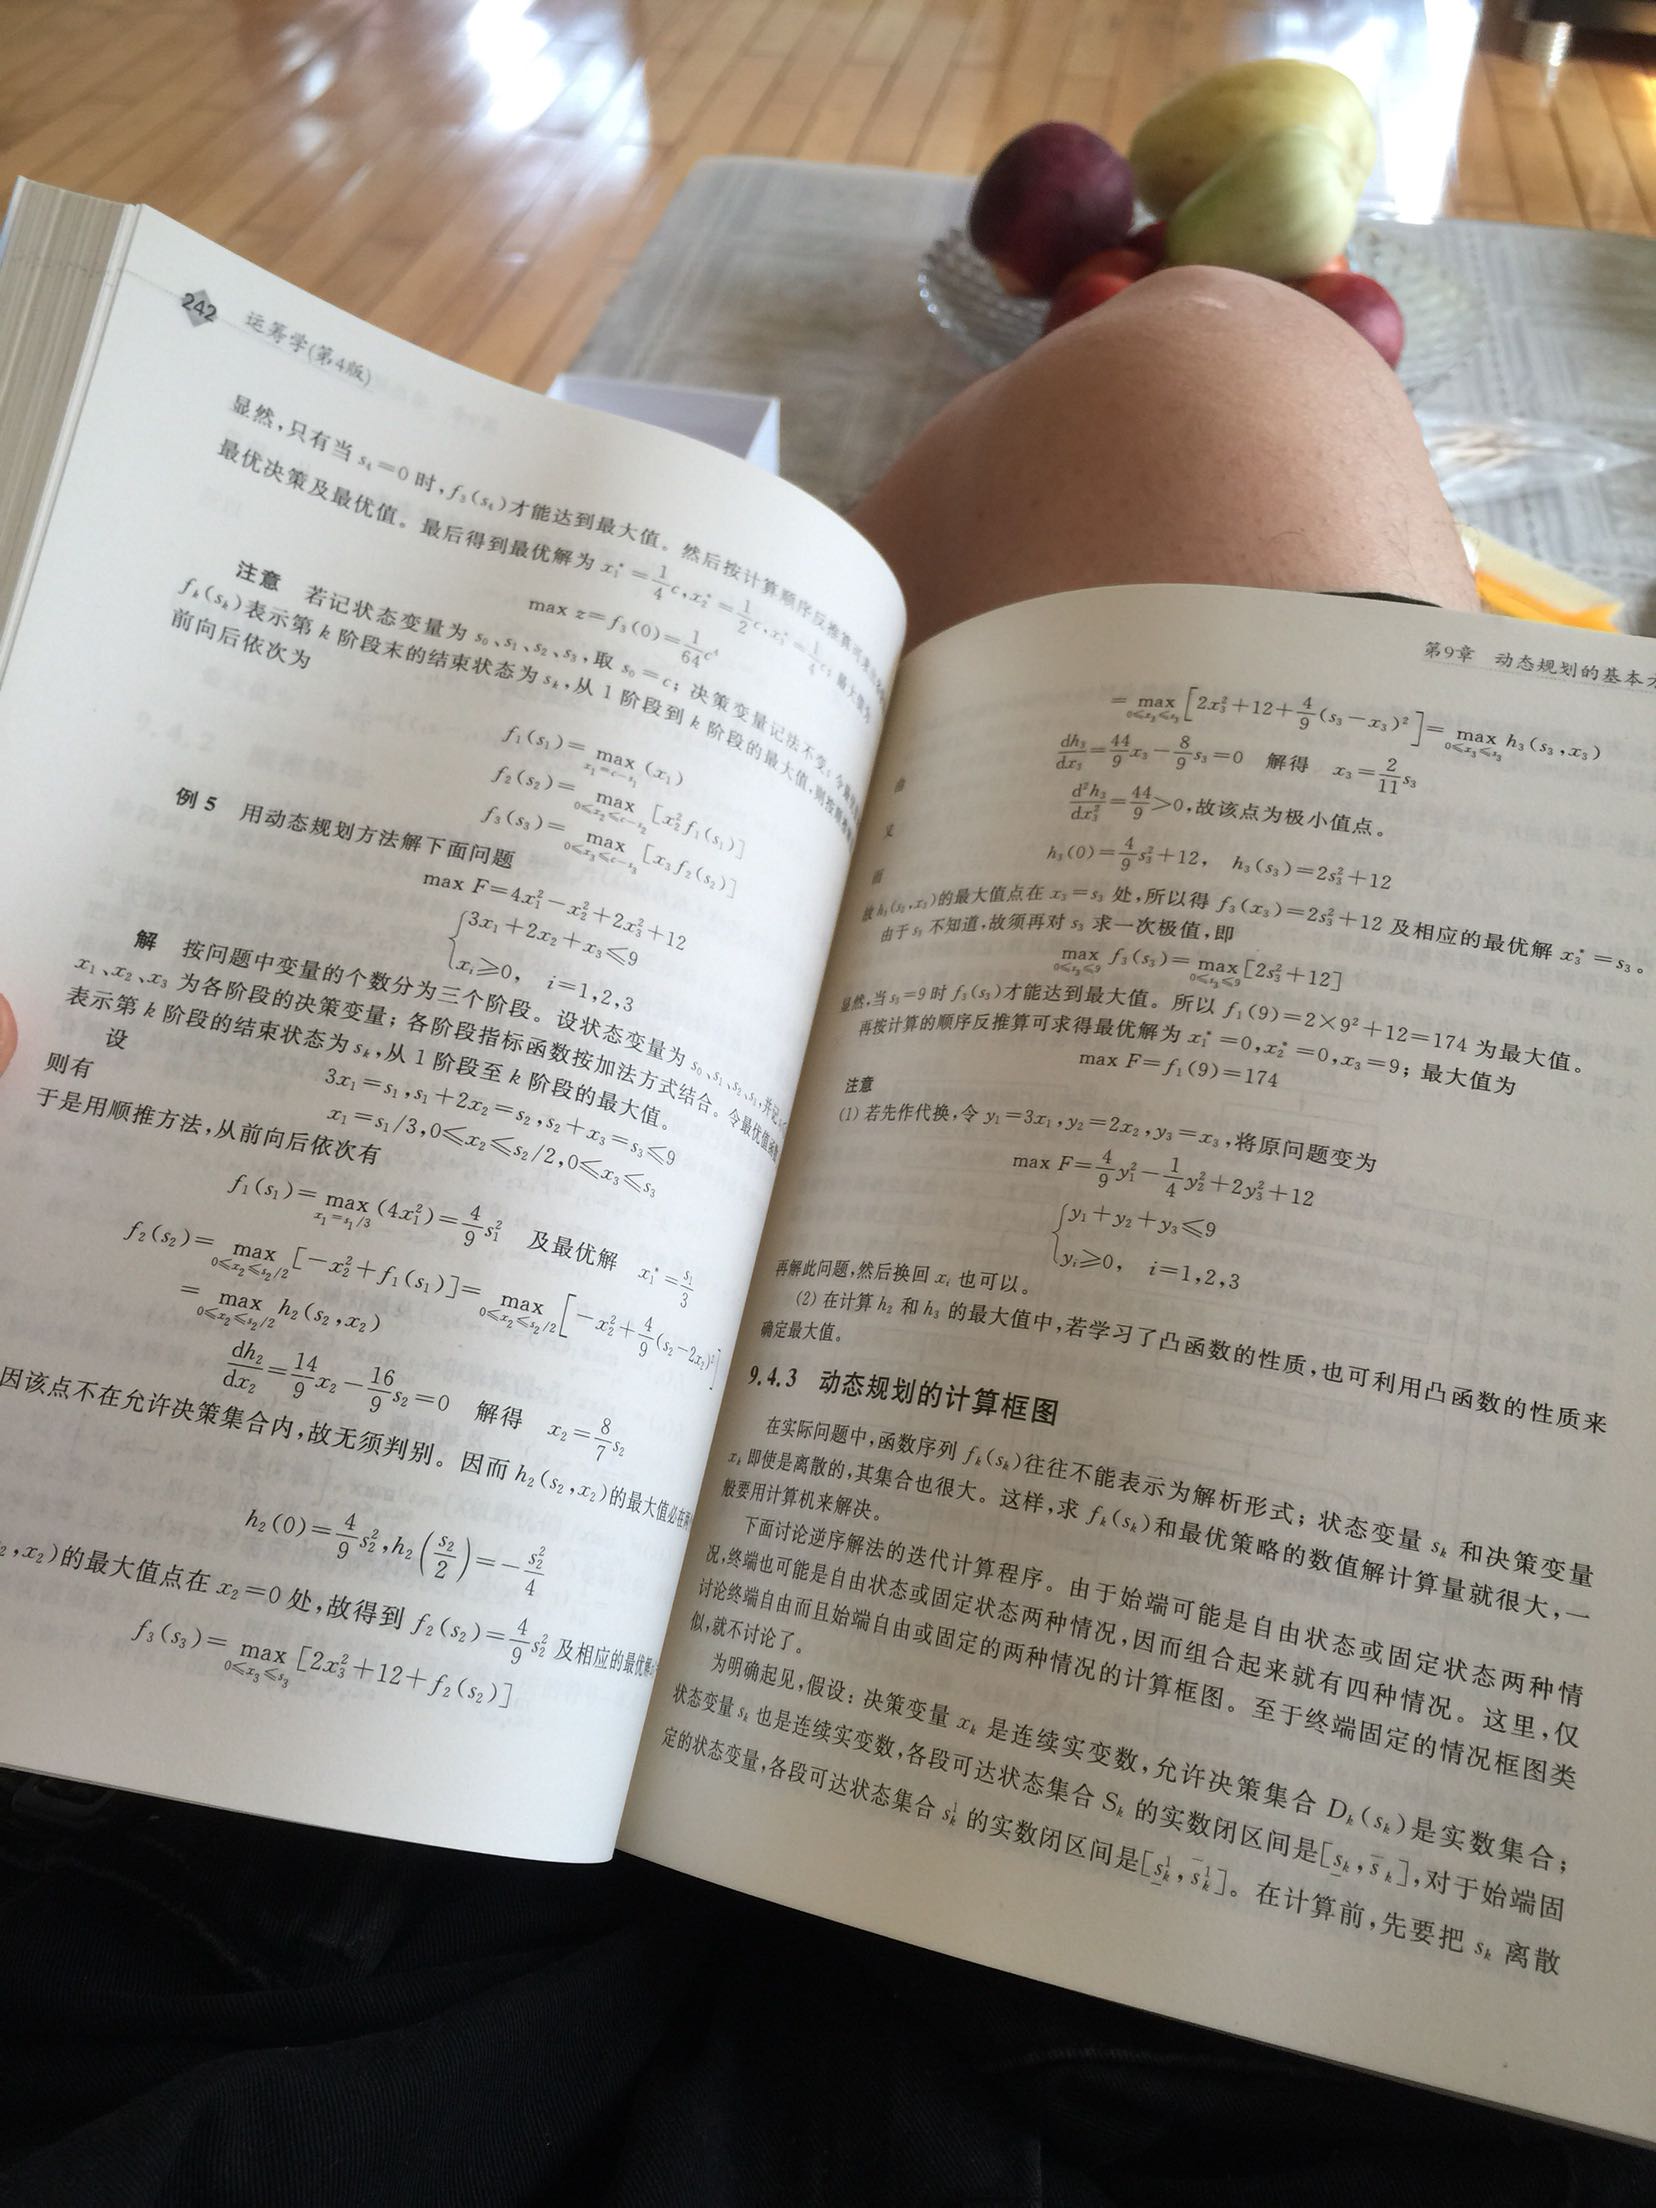 242 运筹学(第4版)
显然,只有当 s₄=0 时,f₃(s₄)才能达到最大值。然后按计算顺序反推算可求
最优决策及最优值。最后得到最优解为 x₁*=1/4 c,x₂*=1/2 c,x₃*=1/4 c;最大值为
max z=f₃(0)=1/64 c⁴
注意 若记状态变量为 s₀、s₁、s₂、s₃,取 s₀=c;决策变量记法不变,令
fₖ(sₖ)表示第 k 阶段末的结束状态为 sₖ,从 1 阶段到 k 阶段的最大值,则
前向后依次为
f₁(s₁)= max_{x₁=c-s₁} (x₁)
f₂(s₂)= max_{0≤x₂≤c-s₂} [x₂² f₁(s₁)]
f₃(s₃)= max_{0≤x₃≤c-s₃} [x₃ f₂(s₂)]
例 5 用动态规划方法解下面问题
max F=4x₁²-x₂²+2x₃²+12
{3x₁+2x₂+x₃≤9
xᵢ≥0, i=1,2,3
解 按问题中变量的个数分为三个阶段。设状态变量为 s₀、s₁、s₂、s₃,并记
x₁、x₂、x₃ 为各阶段的决策变量;各阶段指标函数按加法方式结合。令最优值函数
表示第 k 阶段的结束状态为 sₖ,从 1 阶段至 k 阶段的最大值。
设
3x₁=s₁,s₁+2x₂=s₂,s₂+x₃=s₃≤9
则有
x₁=s₁/3,0≤x₂≤s₂/2,0≤x₃≤s₃
于是用顺推方法,从前向后依次有
f₁(s₁)= max_{x₁=s₁/3} (4x₁²)=4/9 s₁² 及最优解 x₁*=s₁/3
f₂(s₂)= max_{0≤x₂≤s₂/2} [-x₂²+f₁(s₁)]= max_{0≤x₂≤s₂/2} [-x₂²+4/9 (s₂-2x₂)²]
= max_{0≤x₂≤s₂/2} h₂(s₂,x₂)
dh₂/dx₂=14/9 x₂-16/9 s₂=0 解得 x₂=8/7 s₂
因该点不在允许决策集合内,故无须判别。因而 h₂(s₂,x₂)的最大值必在两
h₂(0)=4/9 s₂²,h₂(s₂/2)=-s₂²/4
₂,x₂)的最大值点在 x₂=0 处,故得到 f₂(s₂)=4/9 s₂² 及相应的最优解
f₃(s₃)= max_{0≤x₃≤s₃} [2x₃²+12+f₂(s₂)]
第9章 动态规划的基本
= max_{0≤x₃≤s₃} [2x₃²+12+4/9 (s₃-x₃)²]= max_{0≤x₃≤s₃} h₃(s₃,x₃)
由 dh₃/dx₃=44/9 x₃-8/9 s₃=0 解得 x₃=2/11 s₃
又 d²h₃/dx₃²=44/9>0,故该点为极小值点。
而 h₃(0)=4/9 s₃²+12, h₃(s₃)=2s₃²+12
故 h₃(s₃,x₃)的最大值点在 x₃=s₃ 处,所以得 f₃(x₃)=2s₃²+12 及相应的最优解 x₃*=s₃。
由于 s₃ 不知道,故须再对 s₃ 求一次极值,即
max_{0≤s₃≤9} f₃(s₃)= max_{0≤s₃≤9} [2s₃²+12]
显然,当 s₃=9 时 f₃(s₃)才能达到最大值。所以 f₁(9)=2×9²+12=174 为最大值。
再按计算的顺序反推算可求得最优解为 x₁*=0,x₂*=0,x₃=9;最大值为
max F=f₁(9)=174
注意
(1) 若先作代换,令 y₁=3x₁,y₂=2x₂,y₃=x₃,将原问题变为
max F=4/9 y₁²-1/4 y₂²+2y₃²+12
{y₁+y₂+y₃≤9
yᵢ≥0, i=1,2,3
再解此问题,然后换回 xᵢ 也可以。
(2) 在计算 h₂ 和 h₃ 的最大值中,若学习了凸函数的性质,也可利用凸函数的性质来
确定最大值。
9.4.3 动态规划的计算框图
在实际问题中,函数序列 fₖ(sₖ)往往不能表示为解析形式;状态变量 sₖ 和决策变量
xₖ 即使是离散的,其集合也很大。这样,求 fₖ(sₖ)和最优策略的数值解计算量就很大,一
般要用计算机来解决。
下面讨论逆序解法的迭代计算程序。由于始端可能是自由状态或固定状态两种情
况,终端也可能是自由状态或固定状态两种情况,因而组合起来就有四种情况。这里,仅
讨论终端自由而且始端自由或固定的两种情况的计算框图。至于终端固定的情况框图类
似,就不讨论了。
为明确起见,假设:决策变量 xₖ 是连续实变数,允许决策集合 Dₖ(sₖ)是实数集合;
状态变量 sₖ 也是连续实变数,各段可达状态集合 Sₖ 的实数闭区间是[s̲ₖ,s̄ₖ],对于始端固
定的状态变量,各段可达状态集合 sₖ¹ 的实数闭区间是[s̲ₖ¹,s̄ₖ¹]。在计算前,先要把 sₖ 离散